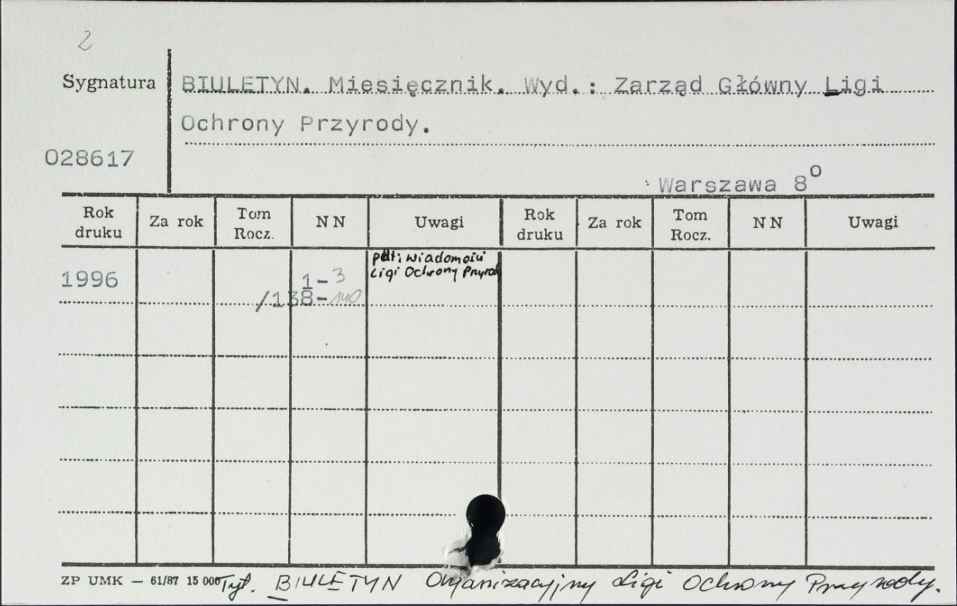 2
Sygnatura
BIULETYN. Miesięcznik. Wyd.: Zarząd Główny Ligi
Ochrony Przyrody.
028617
Warszawa 8°
Rok druku Za rok Tom Rocz. NN Uwagi Rok druku Za rok Tom Rocz. NN Uwagi
1996 1-3 Wiadomości
/138-140 Ligi Ochrony Przyrod
ZP UMK — 61/87 15 000 Tyt. BIULETYN Organizacyjny Ligi Ochrony Przyrody.